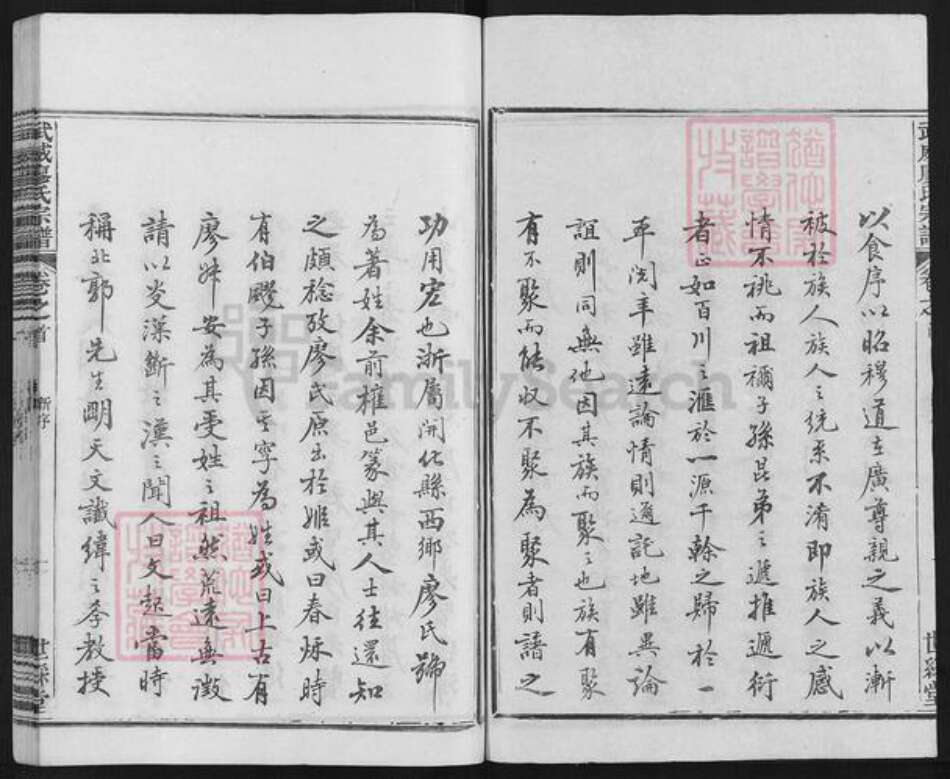 以食序以昭穆道在廣尊親之義以漸
被於族人族人之統系不淆即族人之感
情不祧而祖禰子孫昆弟之遞推遞衍
者正如百川之滙於一源千榦之歸於一
年閱年雖遠論情則通託地雖異論
誼則同無他因其族而聚之也族有聚
有不聚而能收不聚為聚者則譜之
功用宏也浙屬開化縣西鄉廖氏號
為著姓余前權邑篆與其人士往還知
之頗稔攷廖氏原出於姬或曰春秋時
有伯飂子孫因其字為姓或曰上古有
廖叔安為其受姓之祖然荒遠無徵
請以炎漢斷之漢之聞人曰文起當時
稱北郭先生明天文讖緯之學教授
武威廖氏宗譜
卷之首
新序
世綵堂
武威廖氏宗譜
卷之首
世綵堂
FamilySearch